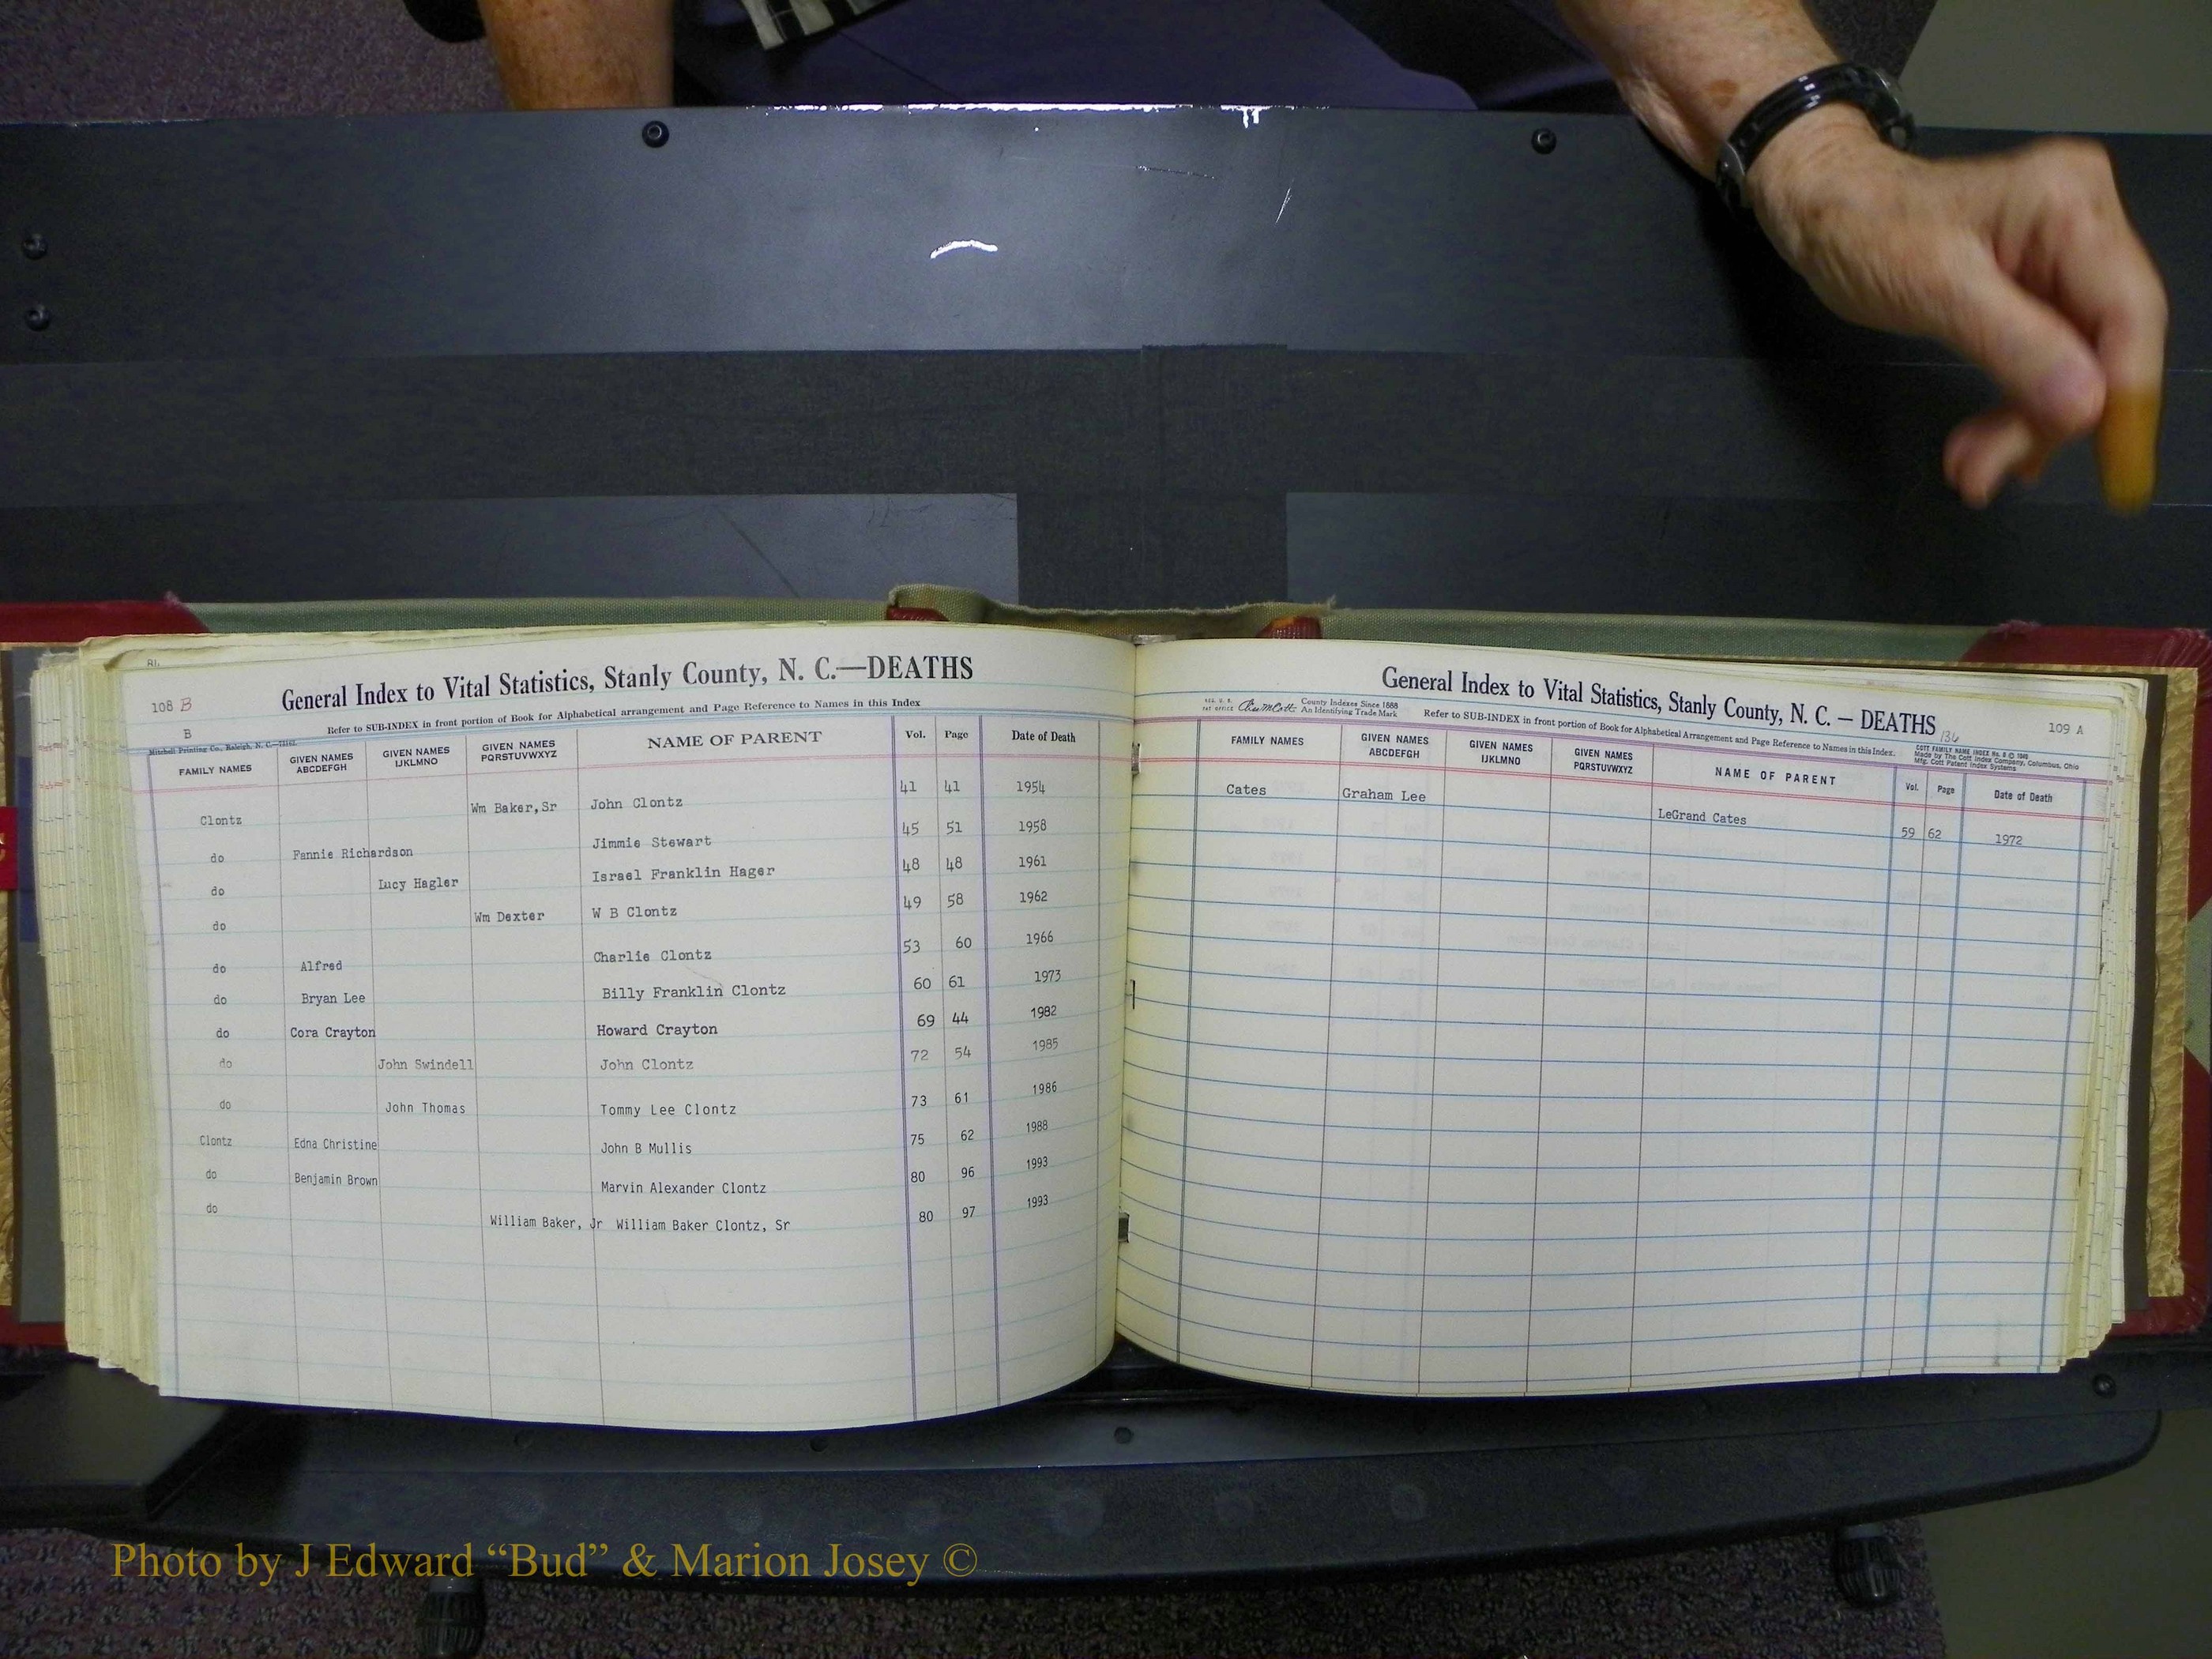 108 B
B
General Index to Vital Statistics, Stanly County, N. C.—DEATHS
Refer to SUB-INDEX in front portion of Book for Alphabetical arrangement and Page Reference to Names in this Index
Mitchell Printing Co., Raleigh, N. C.
FAMILY NAMES GIVEN NAMES ABCDEFGH GIVEN NAMES IJKLMNO GIVEN NAMES PQRSTUVWXYZ NAME OF PARENT Vol. Page Date of Death
Clontz Wm Baker,Sr John Clontz 41 41 1954
do Fannie Richardson Jimmie Stewart 45 51 1958
do Lucy Hagler Israel Franklin Hager 48 48 1961
do Wm Dexter W B Clontz 49 58 1962
do Alfred Charlie Clontz 53 60 1966
do Bryan Lee Billy Franklin Clontz 60 61 1973
do Cora Crayton Howard Crayton 69 44 1982
do John Swindell John Clontz 72 54 1985
do John Thomas Tommy Lee Clontz 73 61 1986
Clontz Edna Christine John B Mullis 75 62 1988
do Benjamin Brown Marvin Alexander Clontz 80 96 1993
do William Baker, Jr William Baker Clontz, Sr 80 97 1993
General Index to Vital Statistics, Stanly County, N. C. — DEATHS
136
109 A
County Indexes Since 1888
An Identifying Trade Mark
Refer to SUB-INDEX in front portion of Book for Alphabetical Arrangement and Page Reference to Names in this Index.
COTT FAMILY NAME INDEX No.
Made by The Cott Index Company, Columbus, Ohio
Mfg. Cott Patent Index Systems
FAMILY NAMES GIVEN NAMES ABCDEFGH GIVEN NAMES IJKLMNO GIVEN NAMES PQRSTUVWXYZ NAME OF PARENT Vol. Page Date of Death
Cates Graham Lee LeGrand Cates 59 62 1972
Photo by J Edward “Bud” & Marion Josey ©